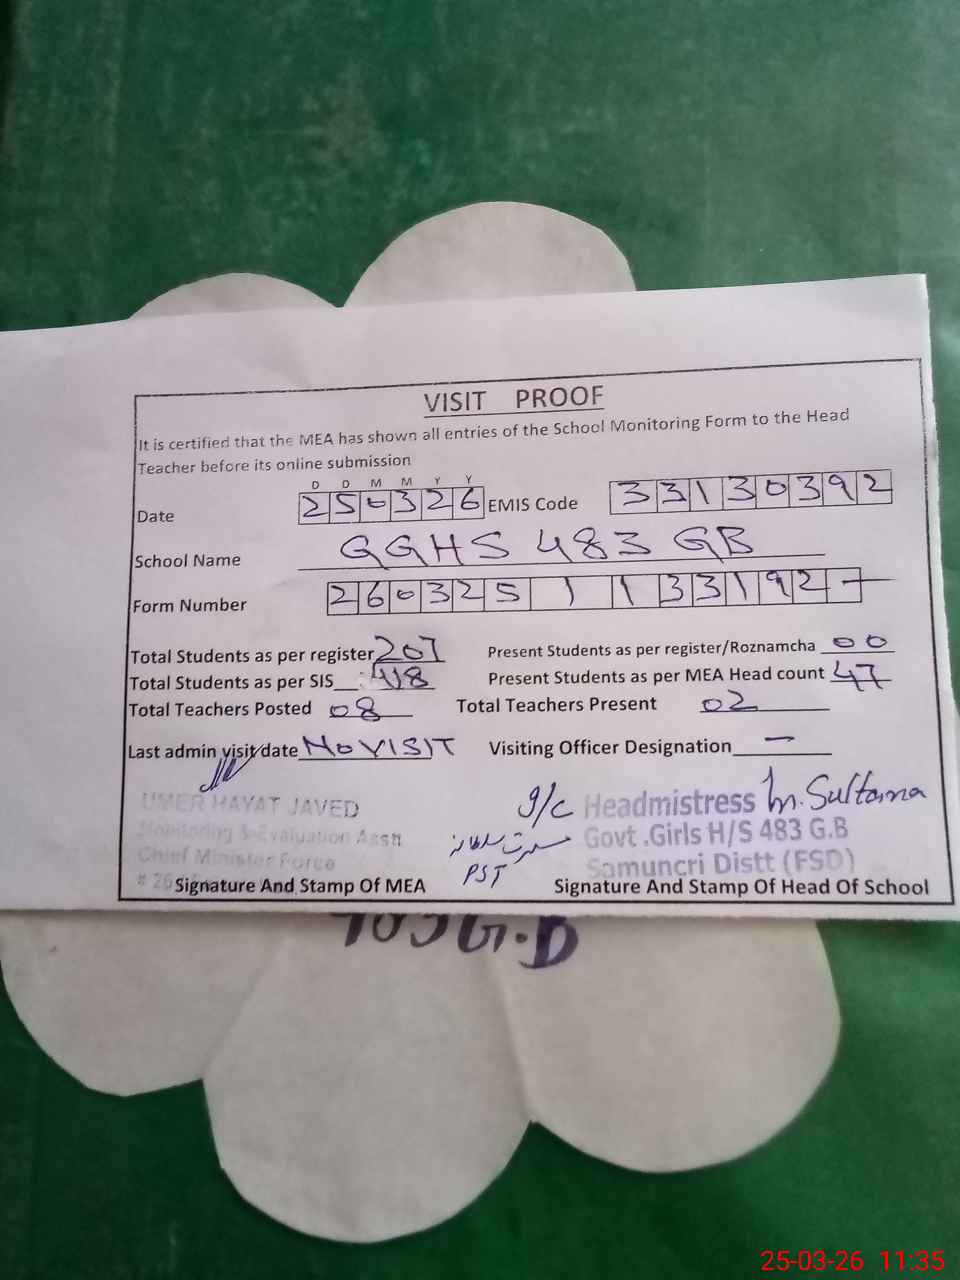 VISIT PROOF
It is certified that the MEA has shown all entries of the School Monitoring Form to the Head
Teacher before its online submission
D D M M Y Y
Date 250326 EMIS Code 33130392
School Name GGHS 483 GB
Form Number 260325 1 1 33192 -
Total Students as per register 207 Present Students as per register/Roznamcha 00
Total Students as per SIS 418 Present Students as per MEA Head count 47
Total Teachers Posted 08 Total Teachers Present 02
Last admin visit date No VISIT Visiting Officer Designation -
UMER HAYAT JAVED
Monitoring & Evaluation Asstt
Chief Minister Force
# 26
Signature And Stamp Of MEA
I/C Headmistress M. Sultana
Govt .Girls H/S 483 G.B
Samuncri Distt (FSD)
PST
Signature And Stamp Of Head Of School
25-03-26 11:35